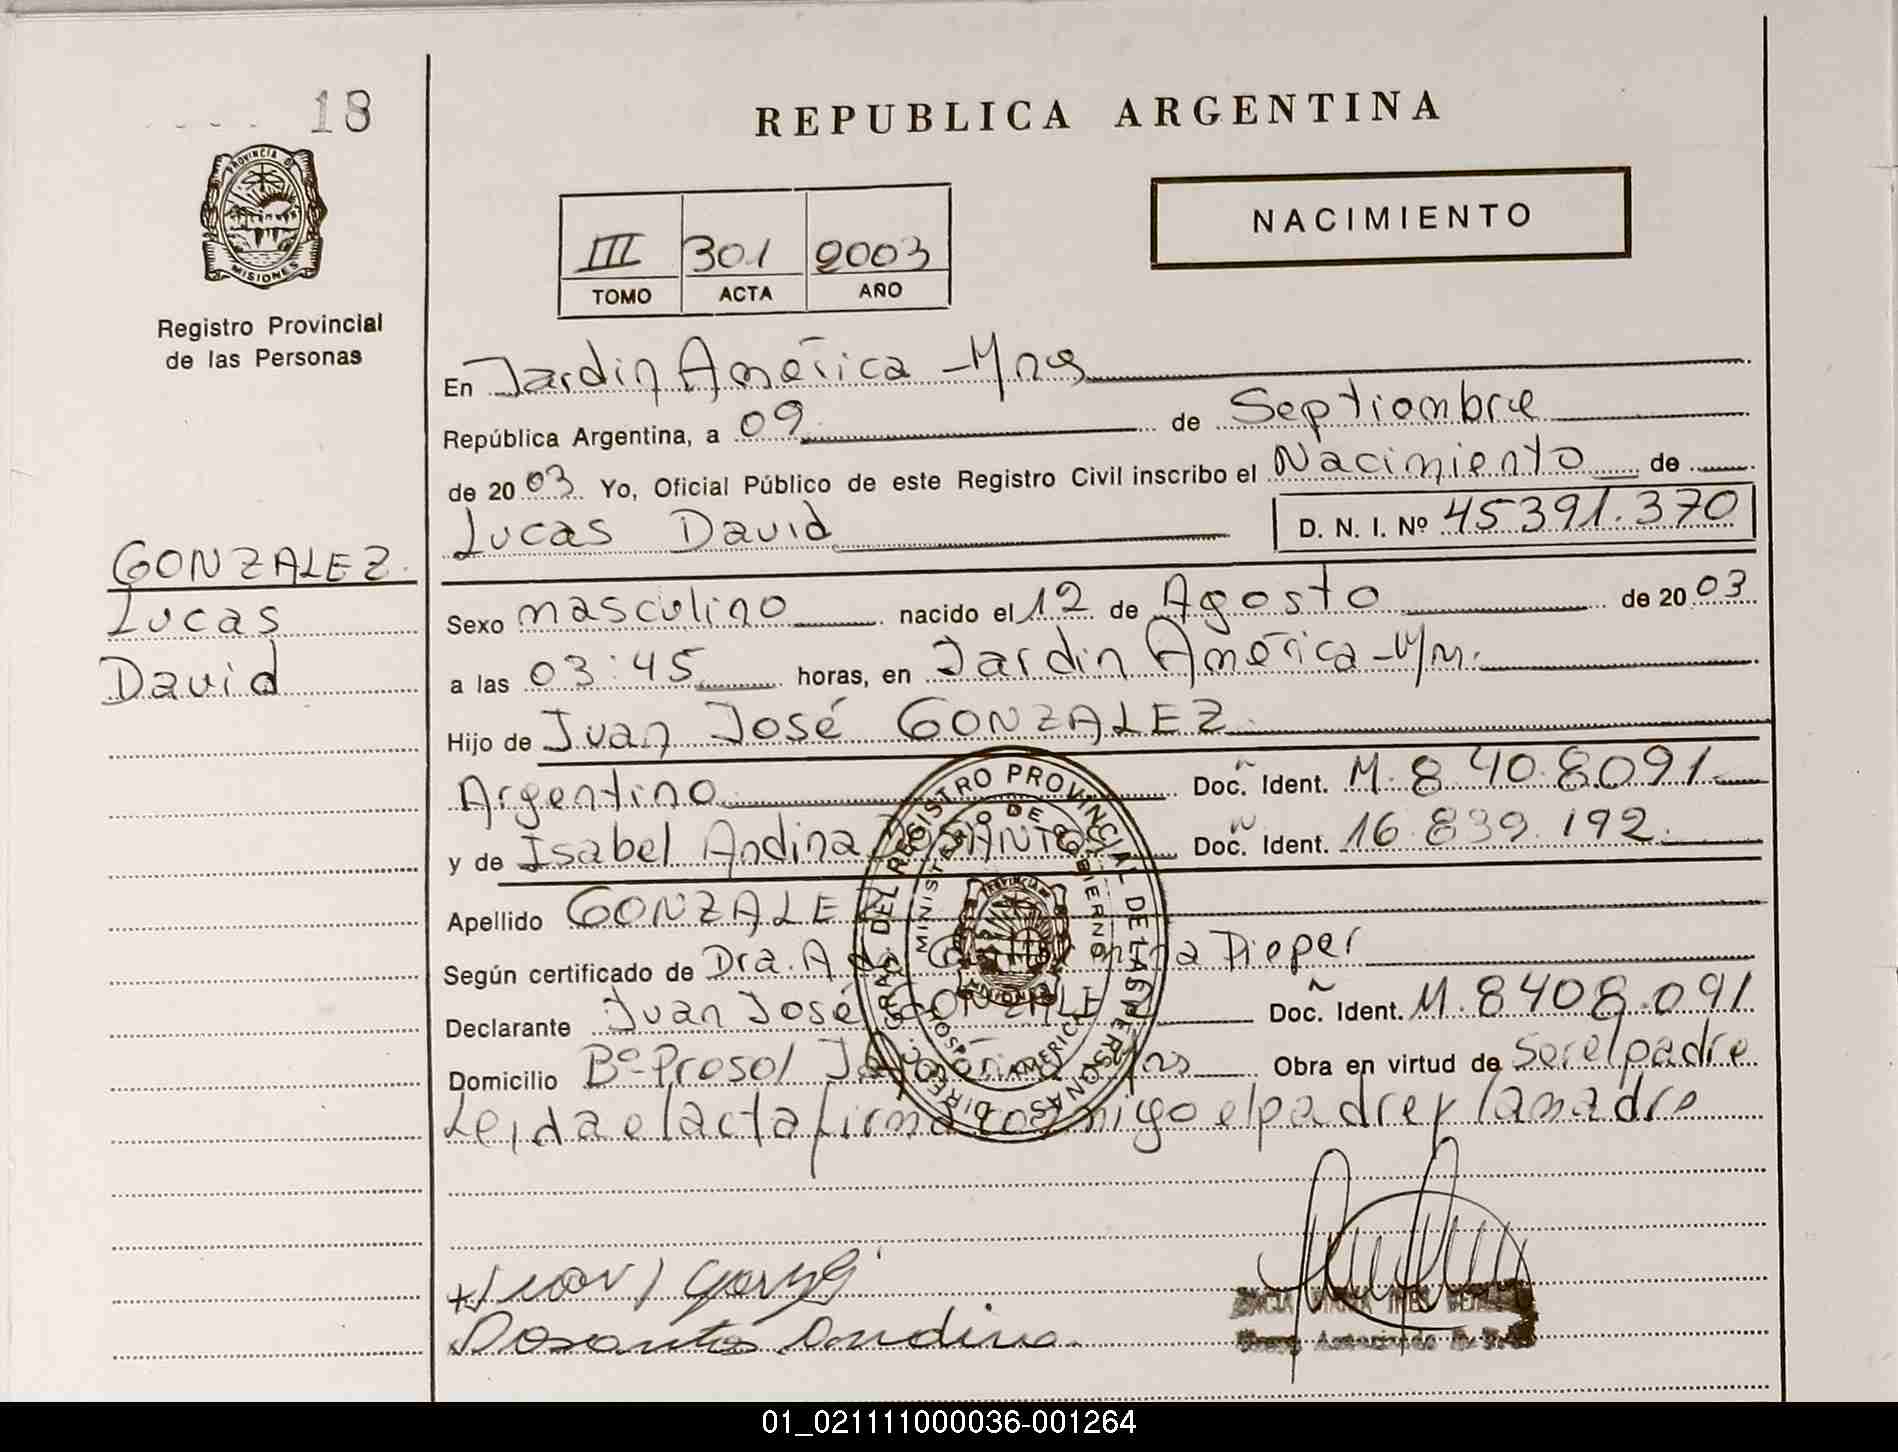 18
PROVINCIA DE
MISIONES
Registro Provincial
de las Personas
GONZALEZ.
Lucas
David
REPUBLICA ARGENTINA
III 301 2003
TOMO ACTA AÑO
NACIMIENTO
En Jardin América - Mnes
República Argentina, a 09 de Septiembre
de 2003 Yo, Oficial Público de este Registro Civil inscribo el Nacimiento de
Lucas David D. N. I. Nº 45391.370
Sexo masculino nacido el 12 de Agosto de 2003
a las 03:45 horas, en Jardin América - Mn.
Hijo de Juan José GONZALEZ
Argentino Doc. Ident. M. 8 40.8091
y de Isabel Andina DOSANTOS Doc. Ident. 16.839.192.
Apellido GONZALEZ
Según certificado de Dra. Dieper
Declarante Juan José GONZALEZ Doc. Ident. M. 8408.091
Domicilio Bº Prosol Obra en virtud de ser el padre
Leida el acta firma conmigo el padre y la madre
DIREC. GRAL. DEL REGISTRO PROVINCIAL DE LAS PERSONAS
MINISTERIO DE GOBIERNO
AMERICA
Dosantos Andina
01_021111000036-001264